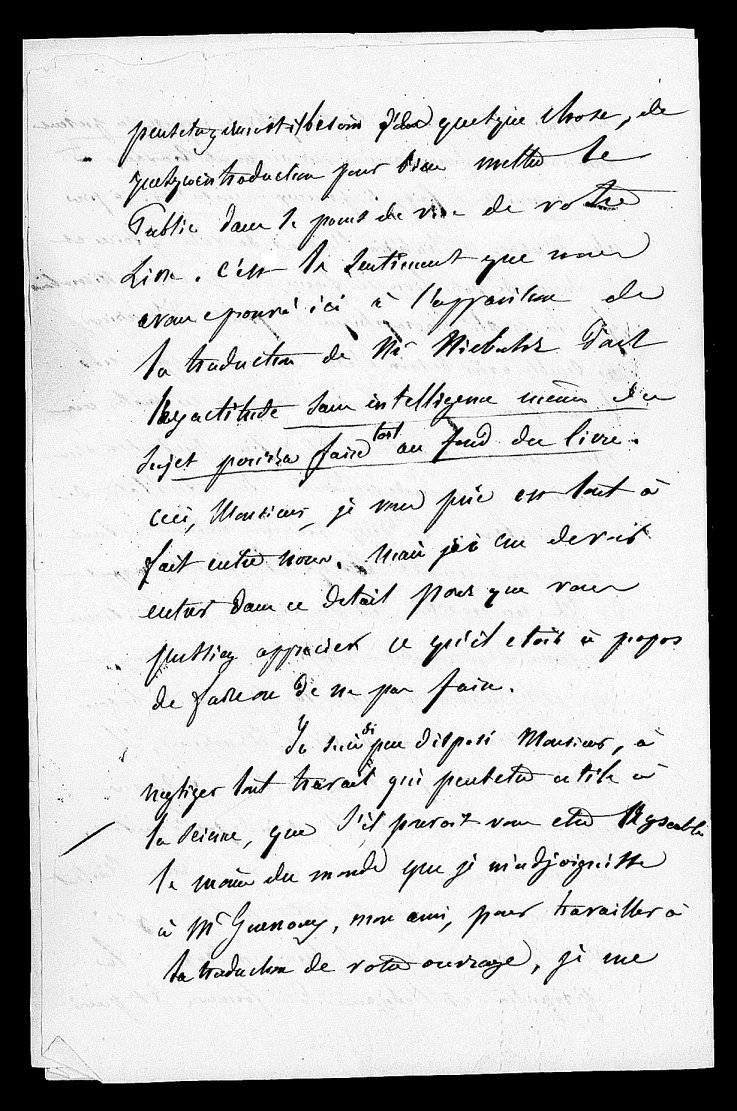 peut etre aurait il besoin d'une quelque chose, de
quelqu'introduction pour bien mettre le
Public dans le point de vue de votre
Livre. c'est le sentiment que nous
avons eprouvé ici à l'apparition de
la traduction de Mr Niebuhr dont
l'exactitude sans intelligence même du
sujet pourra faire tort au fond du livre.
ceci, Monsieur, je vous prie est tout à
fait entre nous. mais j'ai cru devoir
entrer dans ce detail pour que vous
pussiez apprecier ce qu'il etait à propos
de faire ou de ne pas faire.
Je suis si peu disposé Monsieur, à
negliger tout travail qui peut etre utile à
la Science, que s'il pouvait vous etre agreable
le moins du monde que je m'adjoignisse
à Mr Guenoux, mon ami, pour travailler à
la traduction de votre ouvrage, je me